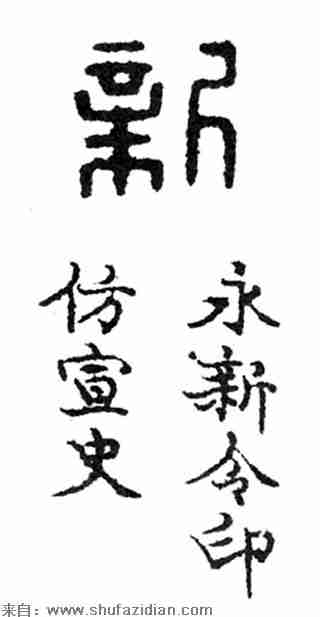 新
永新令印
仿宣史
来自：www.shufazidian.com